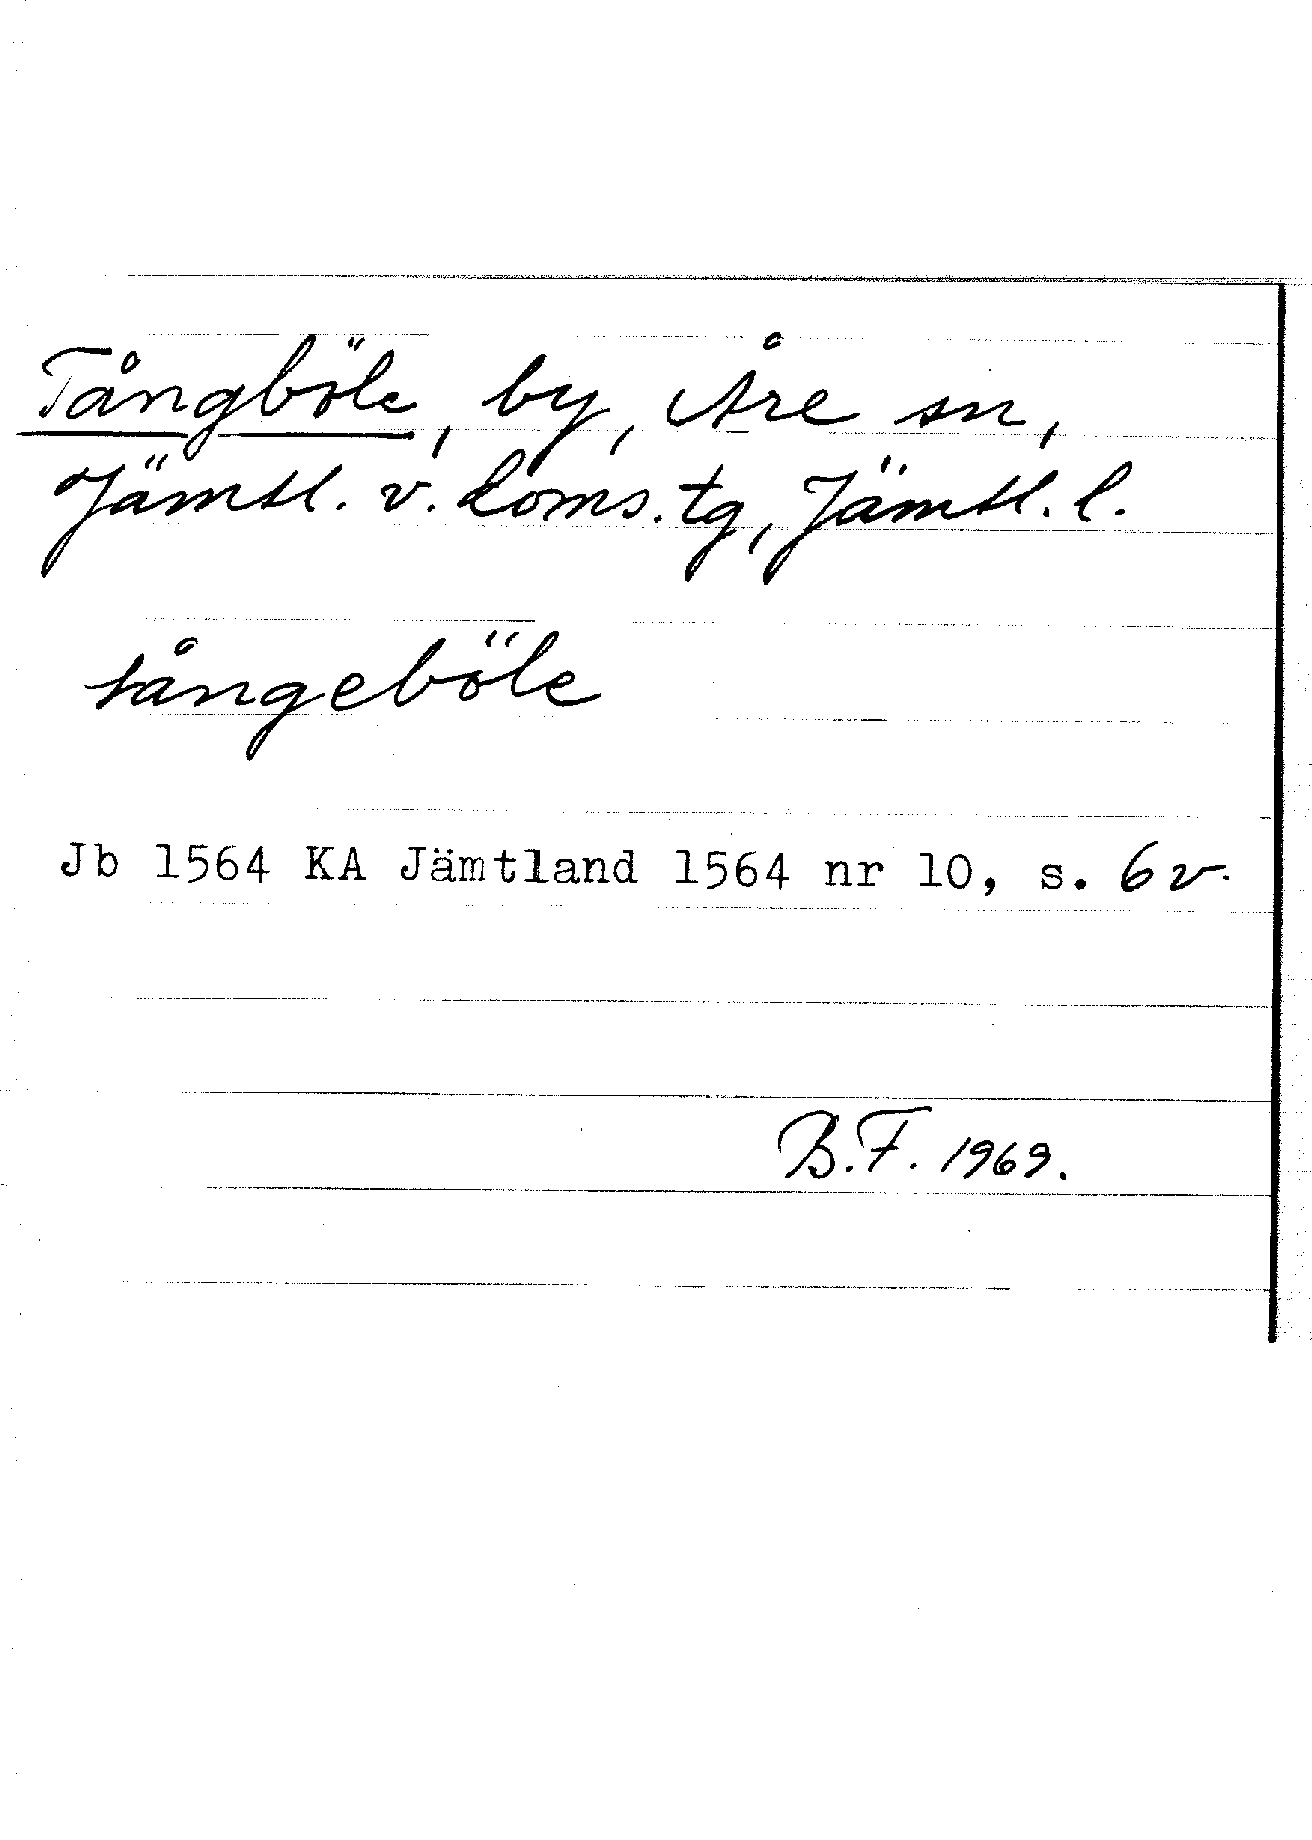 Tångböle, by, Åre sn,
Jämtl. v. doms. tg, Jämtl. l.
tångeböle
Jb 1564 KA Jämtland 1564 nr 10, s. 6v.
B.F. 1969.